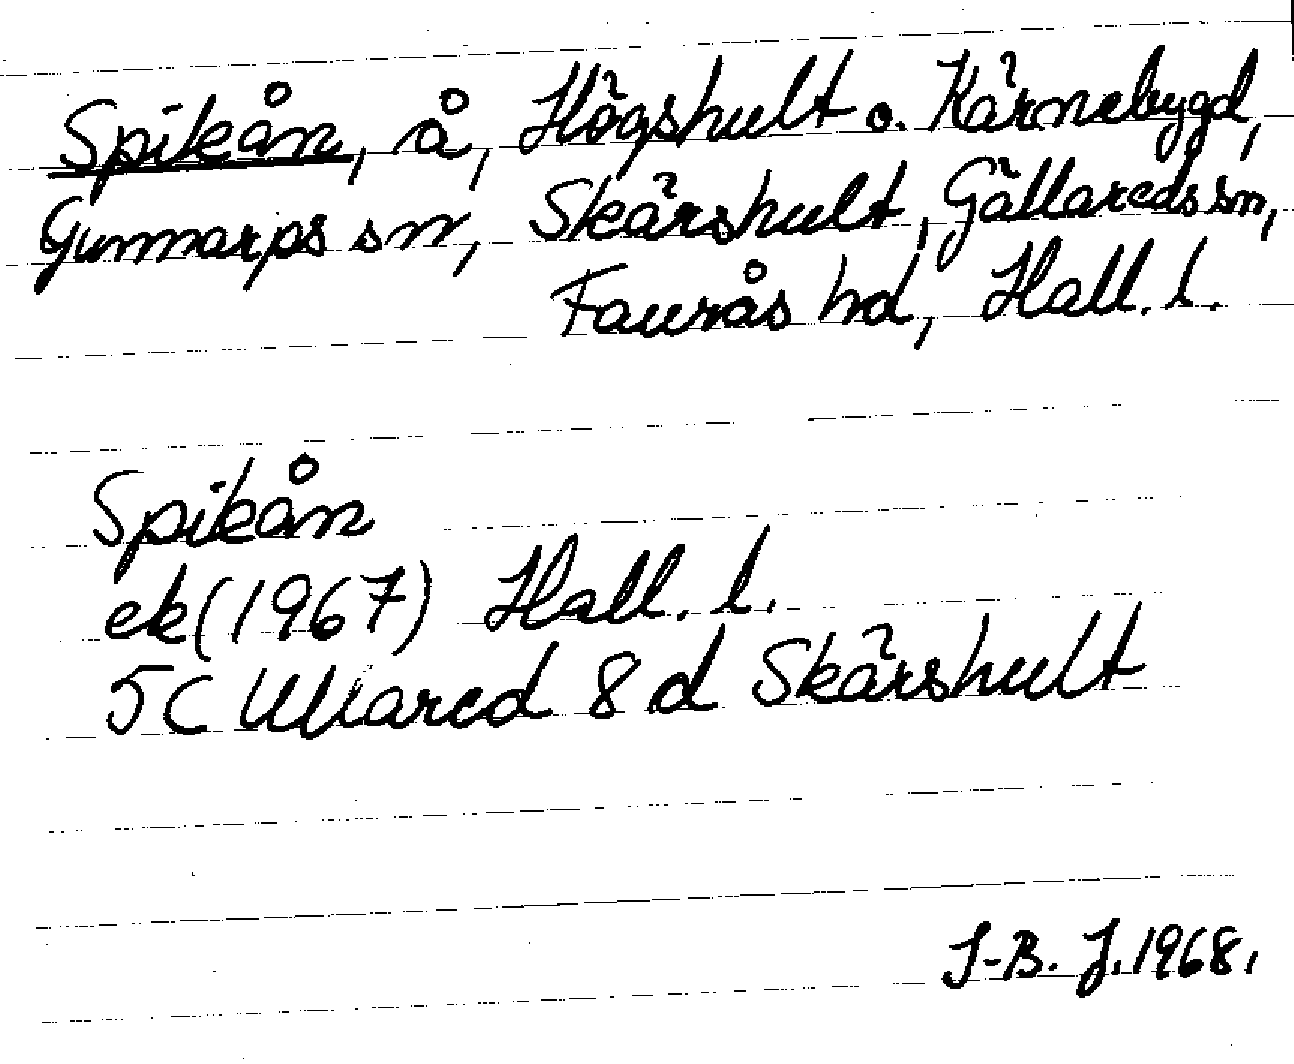 Spikån, å, Högshult o. Kärnebygd,
Gunnarps sn, Skärshult, Gällareds sn,
Faurås hd, Hall. l.
Spikån
ek (1967) Hall. l.
5C Ullared 8 d Skärshult
I-B. J. 1968.